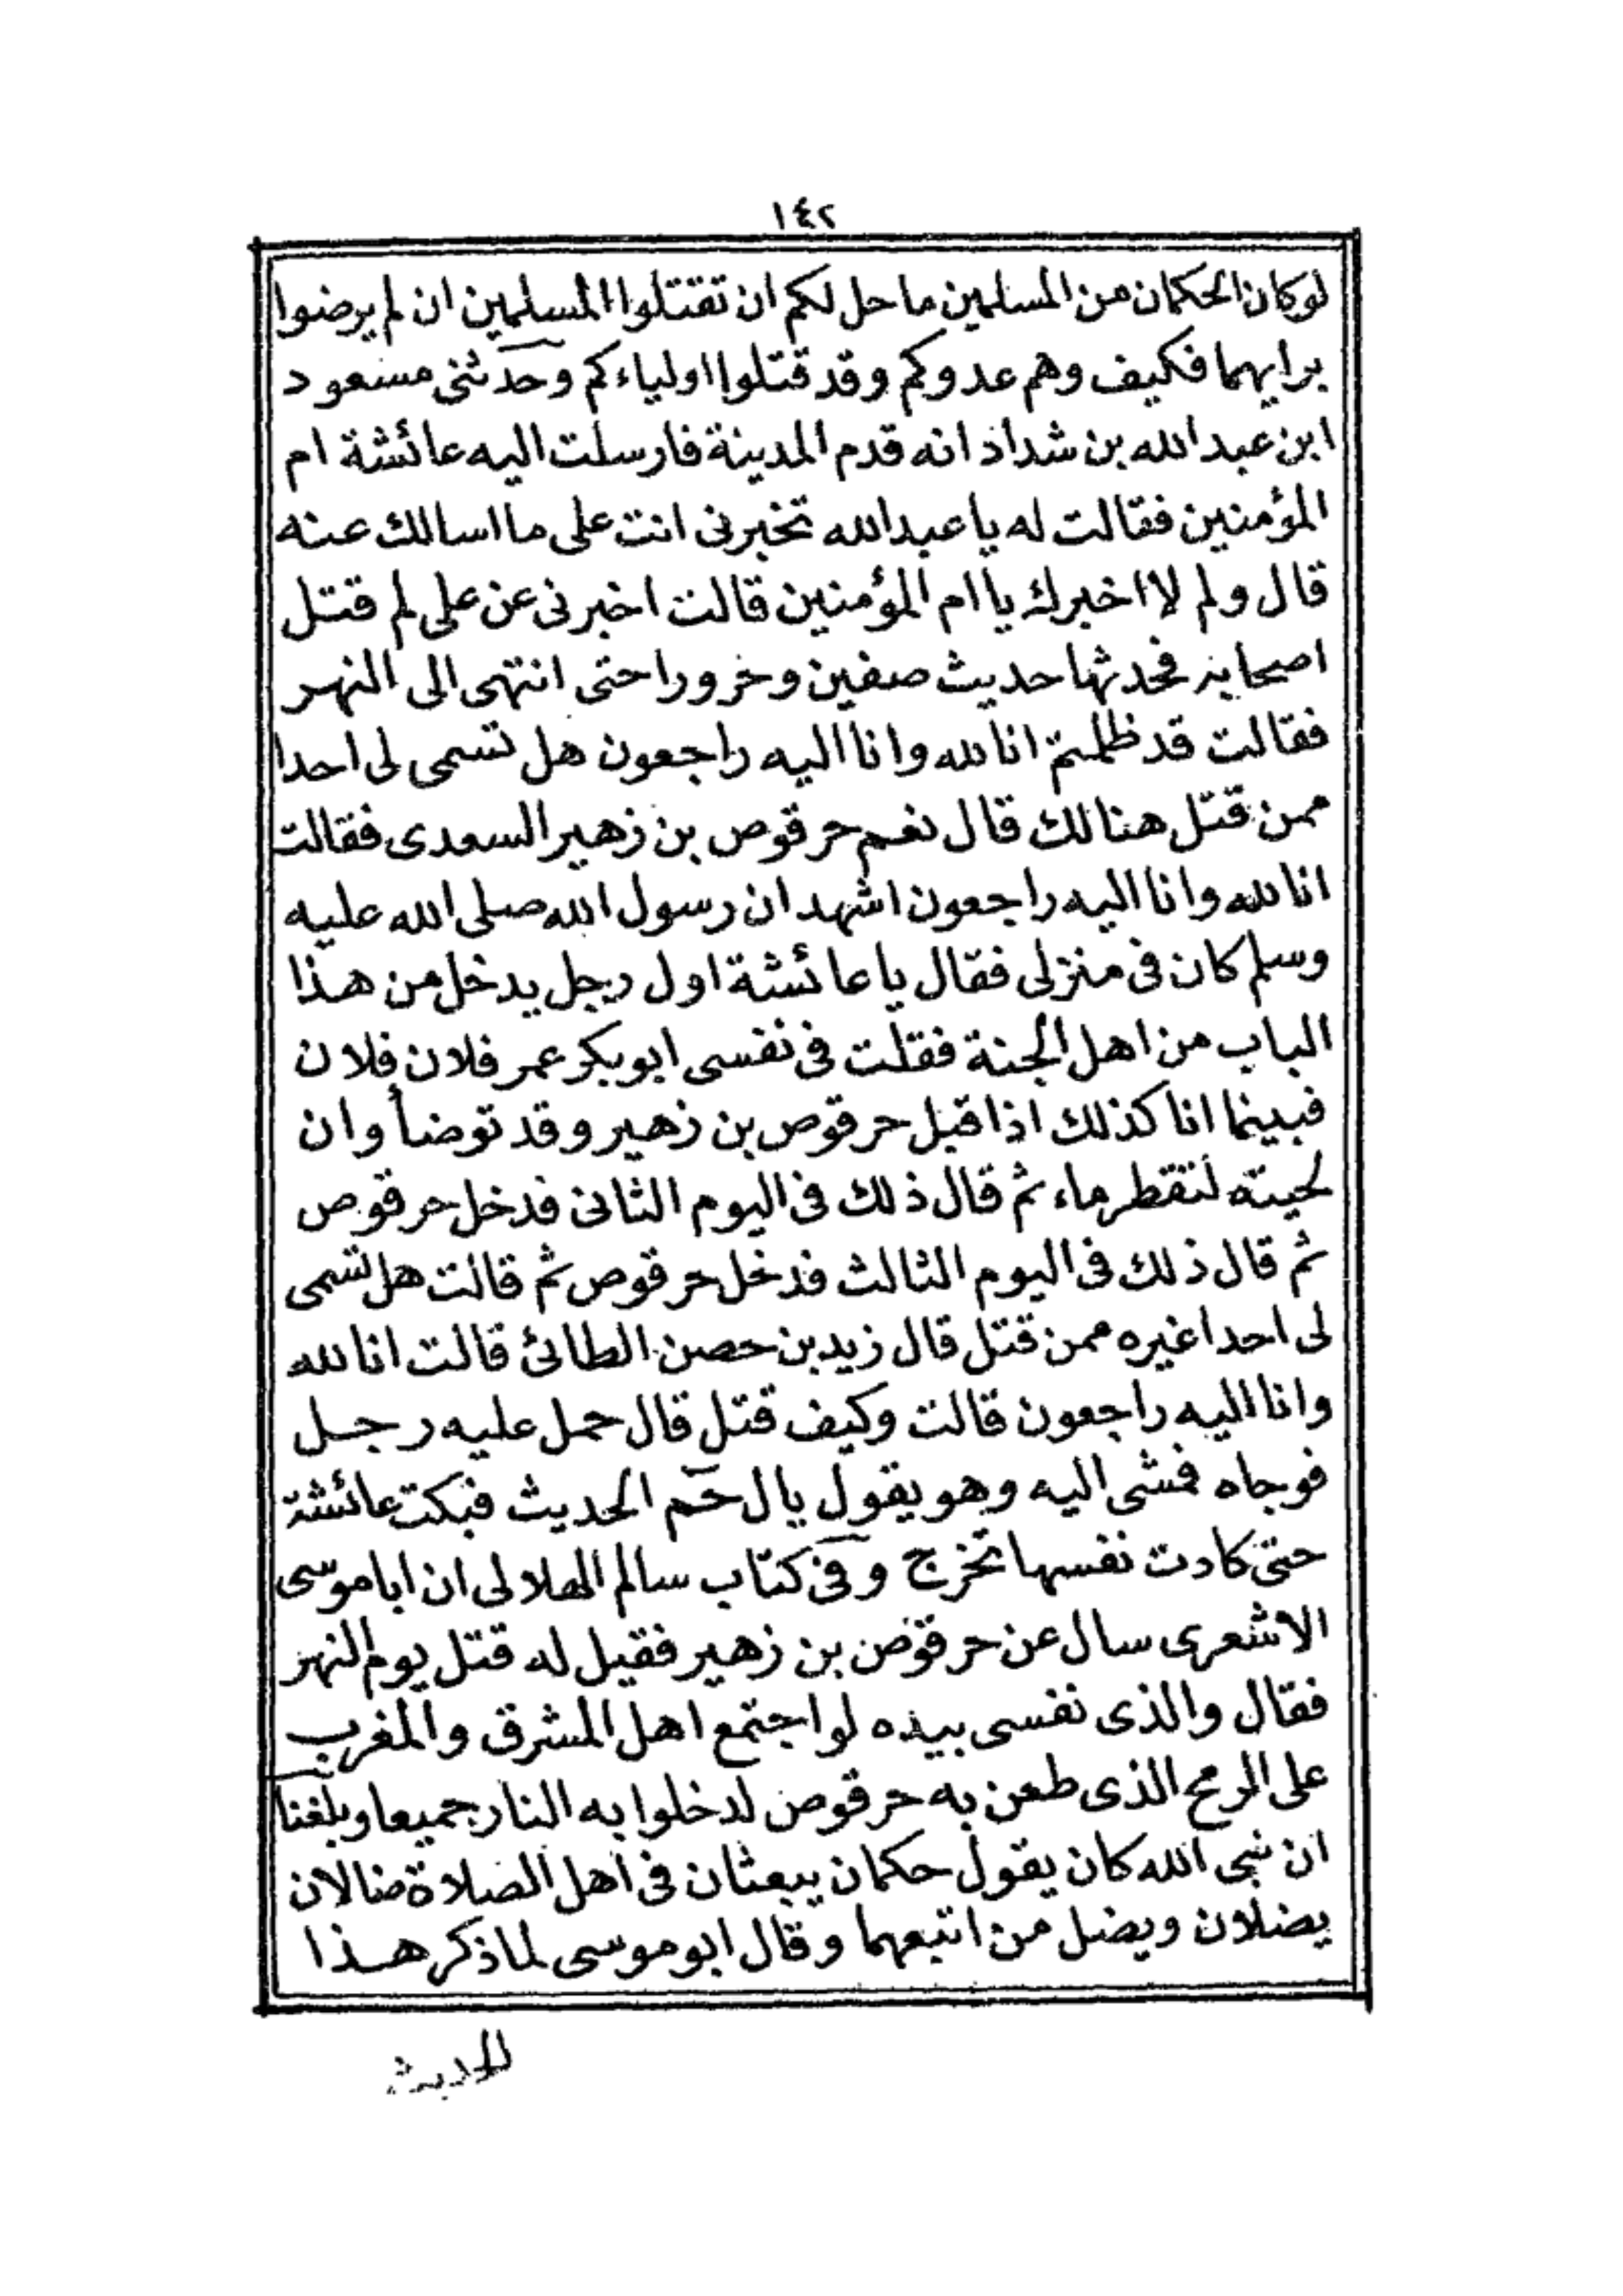 ١٤٢
لوكان الحكمان من المسلمين ما حل لكم ان تقتلوا المسلمين ان لم يرضوا
برايهما فكيف وهم عدوكم وقد قتلوا اولياءكم وحدثنى مسعود
ابن عبد الله بن شداد انه قدم المدينة فارسلت اليه عائشة ام
المؤمنين فقالت له يا عبد الله تخبرنى انت على ما اسالك عنه
قال ولم لا اخبرك يا ام المؤمنين قالت اخبرنى عن على لم قتل
اصحابه فحدثها حديث صفين وحرورا حتى انتهى الى النهر
فقالت قد ظلمتم انا لله وانا اليه راجعون هل تسمى لى احدا
ممن قتل هنالك قال نعم حرقوص بن زهير السعدى فقالت
انا لله وانا اليه راجعون اشهد ان رسول الله صلى الله عليه
وسلم كان فى منزلى فقال يا عائشة اول رجل يدخل من هذا
الباب من اهل الجنة فقلت فى نفسى ابو بكر عمر فلان فلان
فبينما انا كذلك اذ اقبل حرقوص بن زهير وقد توضأ وان
لحيته لتقطر ماء ثم قال ذلك فى اليوم الثانى فدخل حرقوص
ثم قال ذلك فى اليوم الثالث فدخل حرقوص ثم قالت هل تسمى
لى احدا غيره ممن قتل قال زيد بن حصن الطائى قالت انا لله
وانا اليه راجعون قالت وكيف قتل قال حمل عليه رجل
فوجاه فمشى اليه وهو يقول يال حم الحديث فبكت عائشة
حتى كادت نفسها تخرج وفى كتاب سالم الهلالى ان ابا موسى
الاشعرى سال عن حرقوص بن زهير فقيل له قتل يوم النهر
فقال والذى نفسى بيده لو اجتمع اهل المشرق والمغرب
على الرمح الذى طعن به حرقوص لدخلوا به النار جميعا وبلغنا
ان نبى الله كان يقول حكمان يبعثان فى اهل الصلاة ضالان
يضلان ويضل من اتبعهما وقال ابو موسى لما ذكر هذا
الحديث